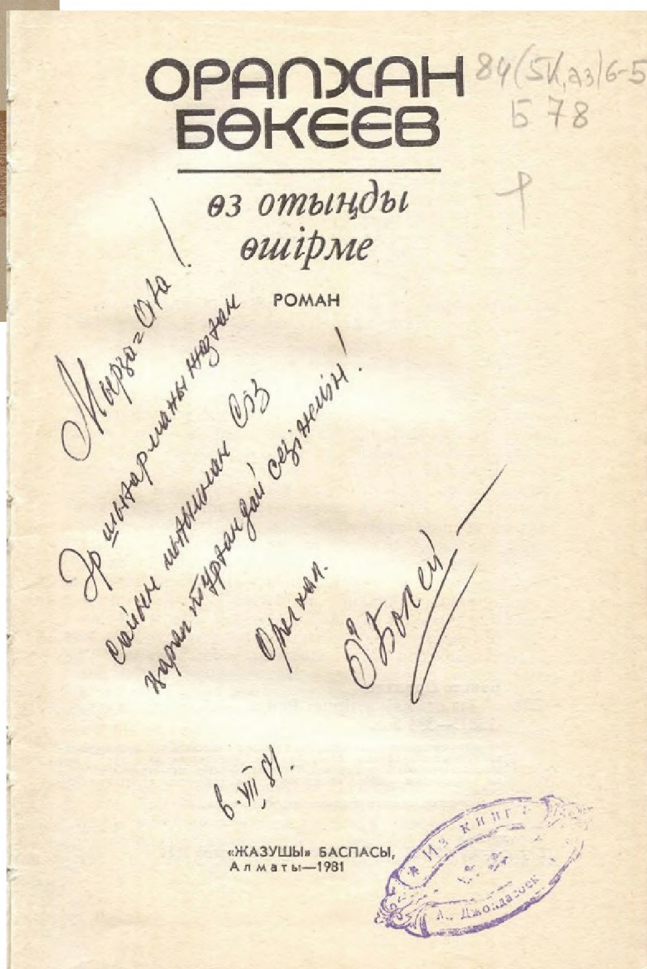 ОРАЛХАН
БӨКЕЕВ
84(5Каз)6-5
Б 78
өз отыңды
өшірме
РОМАН
Мырза-Ата!
Әр шығарманы жазған
сайын иығымнан Сіз
қарап тұрғандай сезінемін!
Оралхан.
Ө Бөкей
6.VII.81.
«ЖАЗУШЫ» БАСПАСЫ,
Алматы—1981
Из книг
Джолдасбек